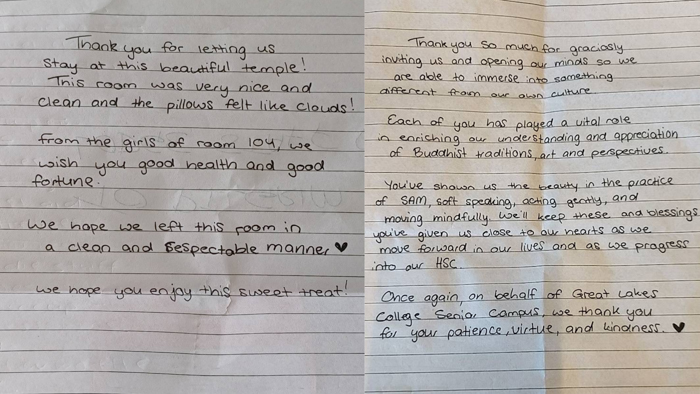 Thank you for letting us
stay at this beautiful temple!
This room was very nice and
clean and the pillows felt like clouds!
from the girls of room 104, we
wish you good health and good
fortune.
We hope we left this room in
a clean and respectable manner ♥
we hope you enjoy this sweet treat!
Thank you so much for graciosly
inviting us and opening our minds so we
are able to immerse into something
different from our own culture
Each of you has played a vital role
in enriching our understanding and appreciation
of Buddhist traditions, art and perspectives.
You've shown us the beauty in the practice
of SAM, soft speaking, acting gently, and
moving mindfully. We'll keep these and blessings
you've given us close to our hearts as we
move forward in our lives and as we progress
into our HSC.
Once again, on behalf of Great Lakes
College Senior Campus, we thank you
for your patience, virtue, and kindness. ♥